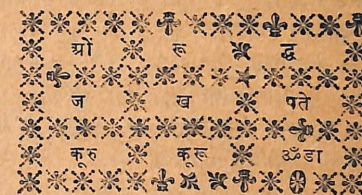 ग्रों रू द्ध
ज ख पते
कूरु कूरू ॐडा